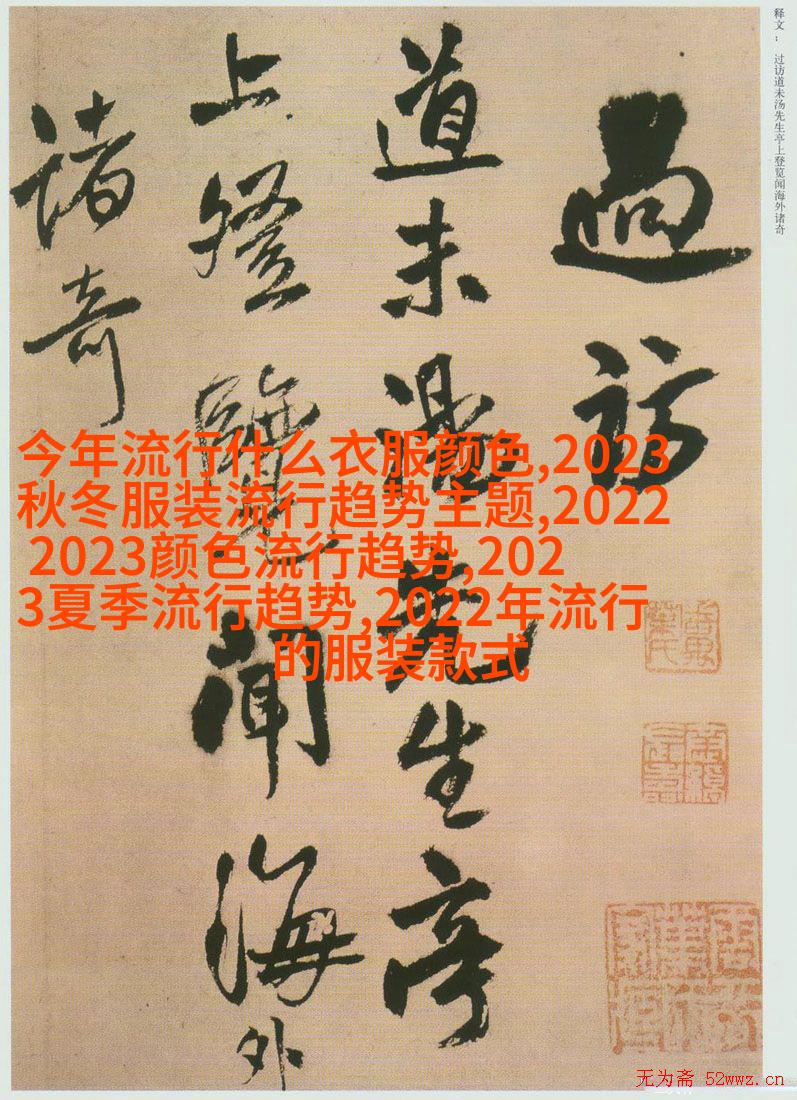 释文：　过访道未汤先生亭上登览闻海外诸奇
過訪
道未湯先生亭
上登覽聞海外
諸奇
今年流行什么衣服颜色,2023
秋冬服装流行趋势主题,2022
2023颜色流行趋势,202
3夏季流行趋势,2022年流行
的服装款式
无为斋 52wwz.cn